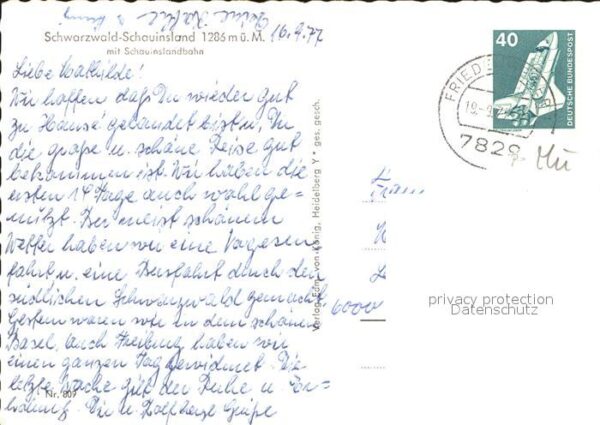 Deine Käthe u.
16.9.77
Schwarzwald-Schauinsland 1286 m ü. M.
mit Schauinslandbahn
Liebe Mathilde!
Wir hoffen daß Du wieder gut
zu Hause gelandet bist u. Dir
die große u. schöne Reise gut
bekommen ist. Wir haben die
ersten 14 Tage auch wohl ge=
nützt. Bei meist schönem
Wetter haben wir eine Vogesen
fahrt u. eine Busfahrt durch den
südlichen Schwarzwald gemacht
Gestern waren wir in dem schönen
Basel, auch Freiburg haben wir
einen ganzen Tag gewidmet. Die
letzte Woche gilt der Ruhe u. Er=
holung. Dir u. Rolf herzl. Grüße
Nr. 809
Verlag Edm. von König, Heidelberg Y * ges. gesch.
40
DEUTSCHE BUNDESPOST
7829
6000
privacy protection
Datenschutz